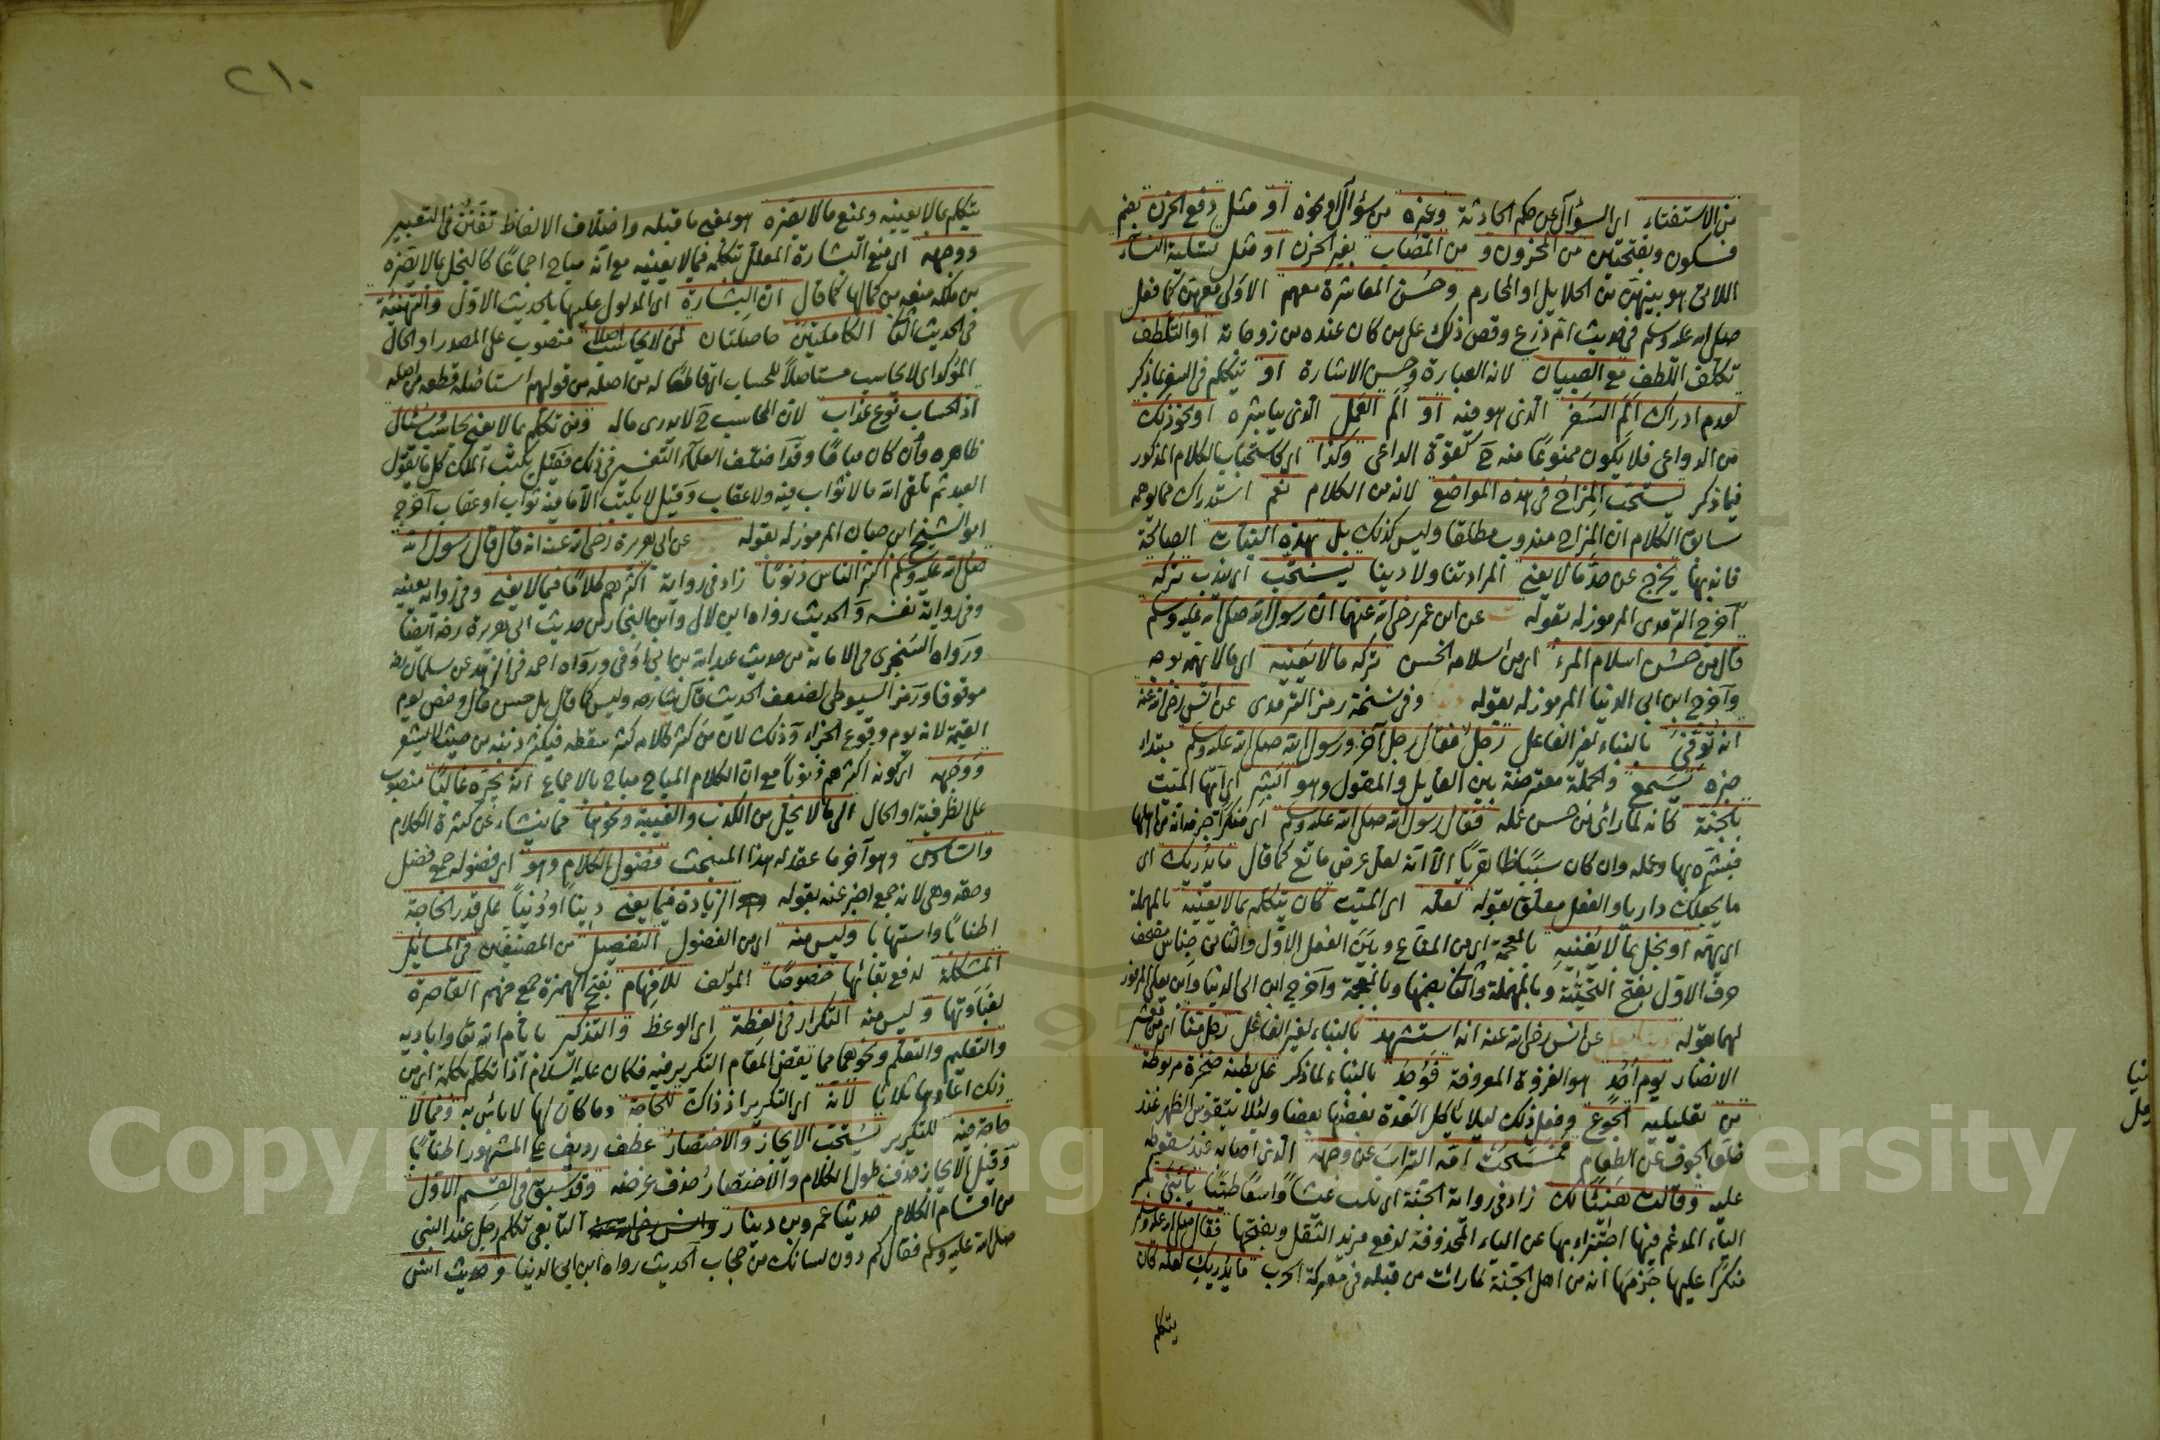 من الاستفتاء اى السؤال عن حكم الحادثة وغيره من سؤال او نحوه او مثل دفع الحزن بضم
فسكون وبفتحتين من المحزون و من المصاب بغير الحزن او مثل تسلية النساء
اللاتى هو بينهن من الحلايل او المحارم وحسن المعاشرة معهم الاولى معهن كما فعل
صلى الله عليه وسلم فى حديث ام زرع وقص ذلك على من كان عنده من زوجاته او التلطف
تكلف اللطف مع الصبيان لانه العبارة وحسن الاشارة او تيكلم فى السفر ما ذكر
لعدم ادراك الم السفر الذى هو فيه او الم العمل الذى يباشره او نحو ذلك
من الدواعى فلا يكون ممنوعا منه ح لقوة الداعى وكذا اى كاستحباب الكلام المذكور
فيما ذكر يستحب المزاح فى هذه المواضع لانه من الكلام نعم استدراك مما يوهمه
سابق الكلام ان المزاح مندوب مطلقا وليس كذلك بل بهذه النيات الصالحة
فانه بها يخرج عن حد ما لا يعنى المراد دنيا ولا دينا يستحب اى يندب تركه
اخرج الترمذى المرموز له بقوله عن ابن عمر رضى الله عنهما ان رسول الله صلى الله عليه وسلم
قال من حسن اسلام المرء اى من اسلامه الحسن تركه ما لا يعنيه اى ما لا يهمه بوجه
واخرج ابن ابى الدنيا المرموز له بقوله وفى نسخة رمز الترمذى عن انس رضى الله عنه
انه توفى بالبناء لغير الفاعل رجل فقال رجل آخر ورسول الله صلى الله عليه وسلم مبتداء
خبره يسمع والجملة معترضة بين القايل والمقول وهو ابشر اى ايها الميت
بالجنة كانه لما رائى من حسن عمله فقال رسول الله صلى الله عليه وسلم اى منكرا جزمه انه من اهلها
فبشره بها وعمله وان كان سببا ظاهريا الا انه لعل عرض مانع كما قال ما يدريك اى
ما يجعلك داريا والفعل معلق بقوله لعله اى الميت كان يتكلم بما لا يعنيه بالمهملة
اى يهمه او بخل بما لا يغنيه بالمعجمة اى من المتاع وبين الفعل الاول والثانى جناس مصحف
حرف الاول بفتح التحتية وبالمهملة والثانى بضمها وبالمعجمة واخرج ابن ابى الدنيا وابن يعلى المرموز
لهما بقوله عن انس رضى الله عنه انه استشهد بالبناء لغير الفاعل رجل منا اى من معشر
الانصار يوم احد هو الغزوة المعروفة فوجد بالبناء لما ذكر على بطنه صخرة مربوطة
من تعليلية الجوع وفعل ذلك ليلا ياكل المعدة بعضها بعضا ولئلا يتقوس الظهر عند
خلو الجوف عن الطعام فمسحت امه التراب عن وجهه الذى اصابه عند سقوطه
عليه وقالت هنيئا لك زاد فى رواية الجنة اى نلت عيشا واسعا طيبا يا بنى بكسر
الياء المدغم فيها اجتزاء بها عن الياء المحذوفة لدفع مزيد الثقل وبفتحها فقال صلى الله عليه وسلم
منكرا عليها جزمها انه من اهل الجنة لما رات من قبله فى معركة الحرب ما يدريك لعله كان
يتكلم
٢١٠
يتكلم بما لا يعنيه ويمنع ما لا يضره هو بمعنى ما قبله واختلاف الالفاظ تفنن فى التعبير
ووجهه اى منع البشارة المعلل بتكلمه فيما لا يعنيه مع انه مباح اجماعا كالبخل بما لا يضره
من ملكه منعه من كمالها كما قال ان البشارة اى المدلول عليها بالحديث الاول والتهنية
فى الحديث الثانى الكاملتين حاصلتان لمن لا يحاسب اصلا منصوب على المصدر او الحال
المؤكد اى لا يحاسب مستاصلا للحساب اى قاطعا له من اصله من قولهم استاصله قطعه من اصله
اذ الحساب نوع عذاب لان المحاسب ح لا يدرى ماله ومن تكلم بما لا يعنى يحاسب ويسأل
ظاهره وان كان مباحا وقد اختلف العلماء التفسير فى ذلك فقيل يكتب الملك كل ما يقول
العبد ثم يلقى الله ما لا ثواب فيه ولا عقاب وقيل لا يكتب الا ما فيه ثواب او عقاب اخرج
ابو الشيخ ابن حبان المرموز له بقوله عن ابى هريرة رضى الله عنه انه قال قال رسول الله
صلى الله عليه وسلم اكثر الناس ذنوبا زاد فى رواية اكثرهم كلاما فيما لا يعنى وفى رواية يعنيه
وفى رواية نفسه والحديث رواه ابن لال وابن النجار من حديث ابى هريرة رضه ايضا
ورواه السنجرى فى الابانة من حديث عبد الله بن ابى اوفى ورواه احمد فى الزهد عن سلمان رضه
موقوفا ورمز السيوطى لضعف الحديث قال شارحه وليس كما قال بل حسن قال وخص يوم
القيمة لانه يوم وقوع الجزاء وذلك لان من كثر كلامه كثر سقطه فيكثر ذنبه من حيث لا يشعر
ووجهه اى كونه اكثرهم ذنوبا مع ان الكلام المباح مباح بالاجماع انه يجره غالبا منصوب
على الظرفية او الحال الى ما لا يحل من الكذب والغيبة ونحوها مما ينشاء عن كثرة الكلام
والسادس وهو آخر ما عقد له هذا المبحث فضول الكلام وهو اى فضوله جمع فضل
وحقه وهى لانه جمع اخبر عنه بقوله الزيادة فيما يعنى دينا او دنيا على قدر الحاجة
اطنابا واستهابا وليس منه اى من الفضول التفصيل من المصنفين فى المسايل
المشكلة لدفع بقائها خصوصا المؤلف للافهام بفتح الهمزة جمع فهم القاصرة
لغباوتها وليس منه التكرار فى العظة اى الوعظ والتذكير بايام الله تعالى واياديه
والتعليم والتعلم ونحوهما مما يقتضى المقام التكرير فيه فكان عليه السلام اذا تكلم بكلمة اى من
ذلك اعادها ثلاثا لانه اى التكرير اذ ذاك للحاجة وما كان لها لا باس به وفيما لا
حاجة فيه للتكرير يستحب الايجاز والاختصار عطف رديف على المشهور اطنابا
وقيل الايجاز حذف طول الكلام والاختصار حذف عرضه وقد سبق فى القسم الاول
من اقسام الكلام حديثا عمرو بن دينار التابعى تكلم رجل عند النبى
صلى الله عليه وسلم فقال كم دون لسانك من حجاب الحديث رواه ابن ابى الدنيا وحديث انس